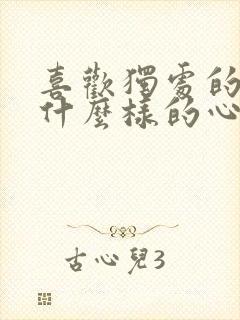 喜歡獨處的
什麼樣的心
古心兒3